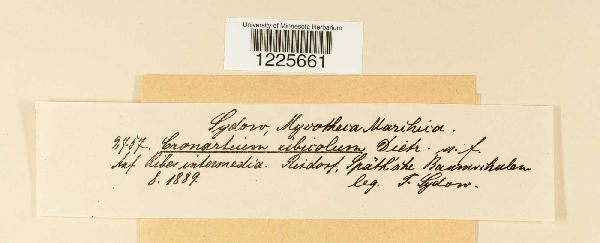 University of Minnesota Herbarium
1225661
Sydow, Mycotheca Marchica.
2757. Cronartium ribicolum Dietr. n. f.
Auf Ribes intermedia. Rixdorf, Späth'sche Baumschulen
8. 1889. leg. P. Sydow.